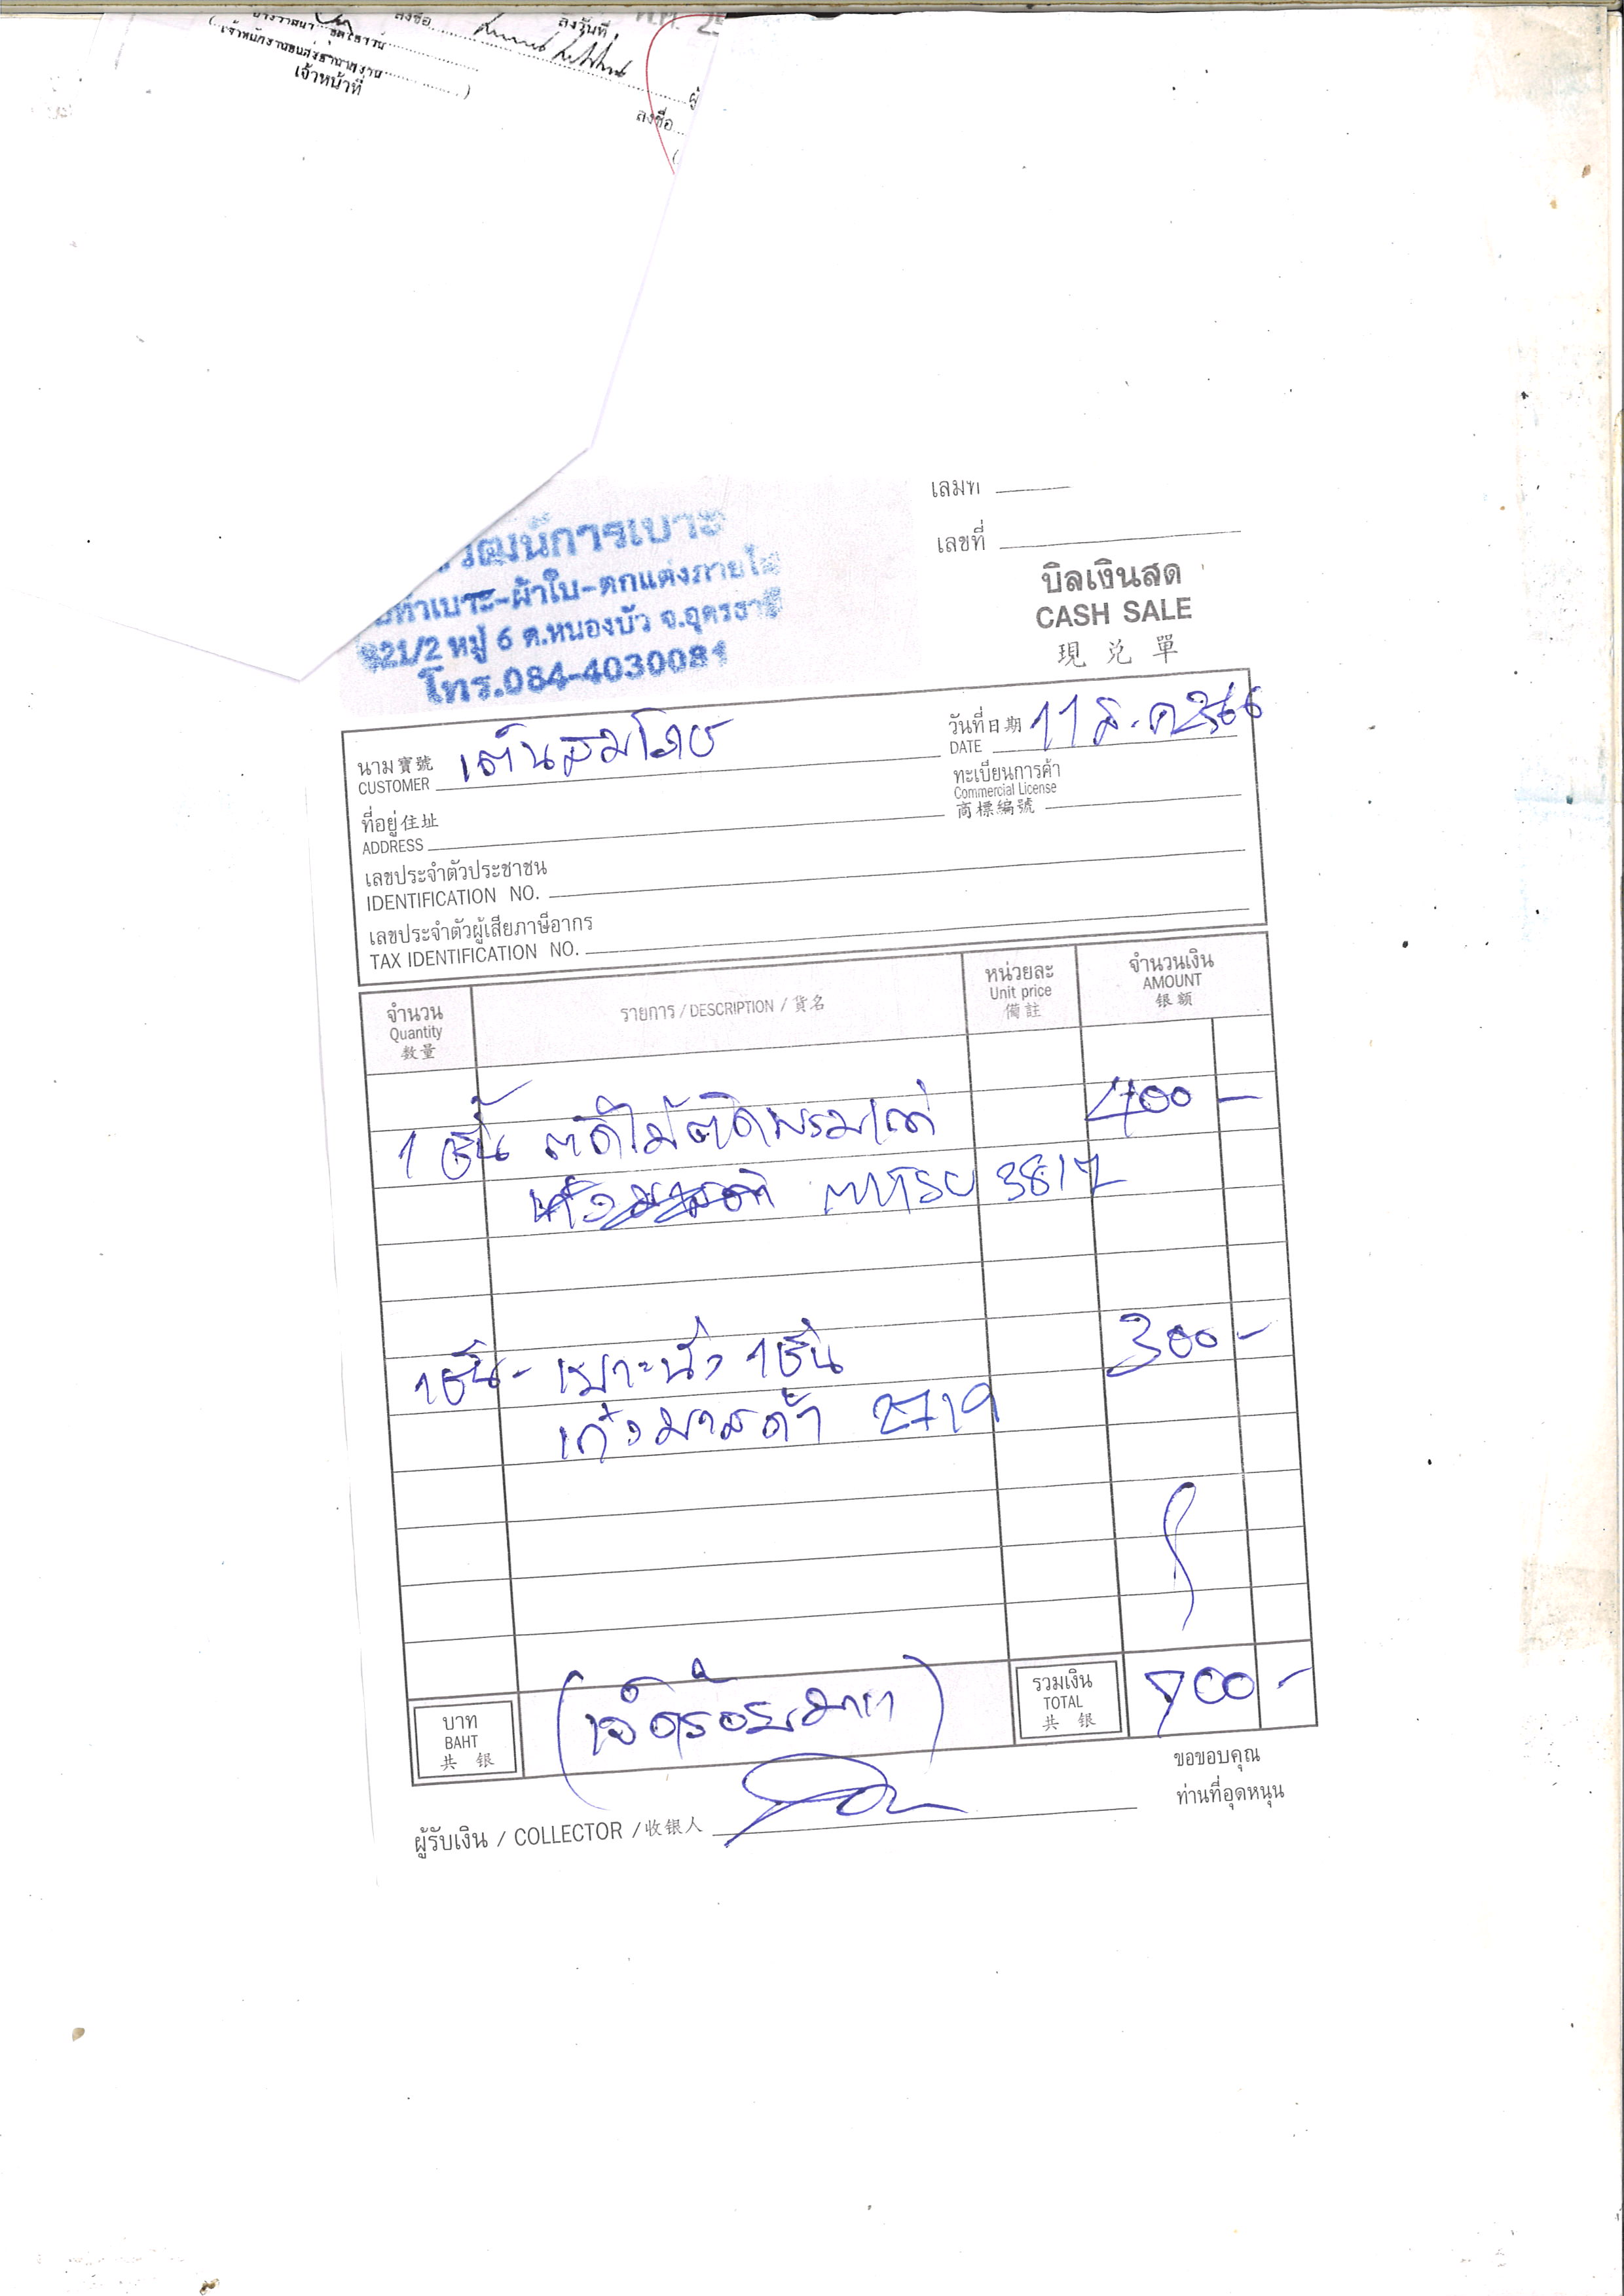 ลงชื่อ
ลงวันที่
เจ้าหน้าที่
ลงชื่อ
วัฒน์การเบาะ
ทำเบาะ-ผ้าใบ-ตกแต่งภายใน
821/2 หมู่ 6 ต.หนองบัว จ.อุดรธานี
โทร.084-4030081
เล่มที่
เลขที่
บิลเงินสด
CASH SALE
現 兑 單
นาม 寶號
CUSTOMER เต้นสมโภช
วันที่ 日期
DATE 11 ธ.ค 2566
ที่อยู่ 住址
ADDRESS
ทะเบียนการค้า
Commercial License
商標編號
เลขประจำตัวประชาชน
IDENTIFICATION NO.
เลขประจำตัวผู้เสียภาษีอากร
TAX IDENTIFICATION NO.
จำนวน
Quantity
数量
รายการ / DESCRIPTION / 貨名
หน่วยละ
Unit price
備註
จำนวนเงิน
AMOUNT
银额
1 ชิ้น ตัดไม้ติดพรม 400 -
3817
1 ชิ้น - เบาะนั่ง 1 ชิ้น 300 -
เก๋งมาสด้า 2719
บาท
BAHT
共 银
(เจ็ดร้อยบาท)
รวมเงิน
TOTAL
共 银
700 -
ขอขอบคุณ
ท่านที่อุดหนุน
ผู้รับเงิน / COLLECTOR / 收银人